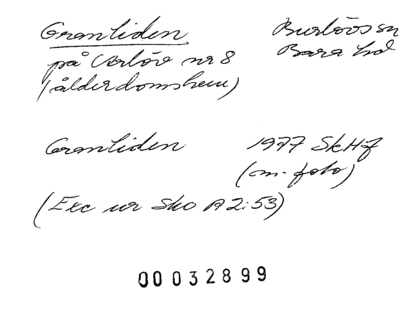 Granliden Burlövs sn
på Arlöv nr 8 Bara hd
(ålderdomshem)
Granliden 1977 SkHf
(m. foto)
(Exc ur Sko A 2:53)
00032899